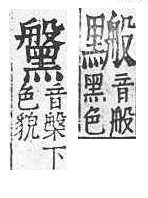 音般
黑色
音槃下
色貌